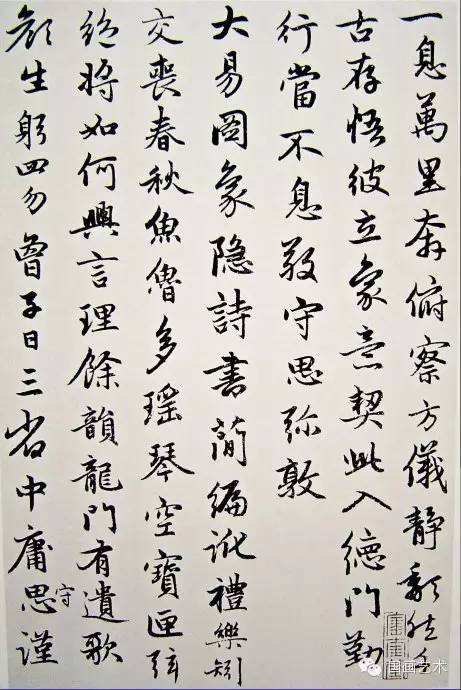 一息萬里奔俯察方儀静頹然千
古存悟彼立象意契此入德門勤
行當不息敬守思弥敦
大易圖象隐詩書簡編訛禮樂矧
交喪春秋魚魯多瑶琴空寶匣弦
絶將如何興言理餘韻龍門有遺歌
顔生躬四勿曾子日三省中庸思謹
守
国画艺术